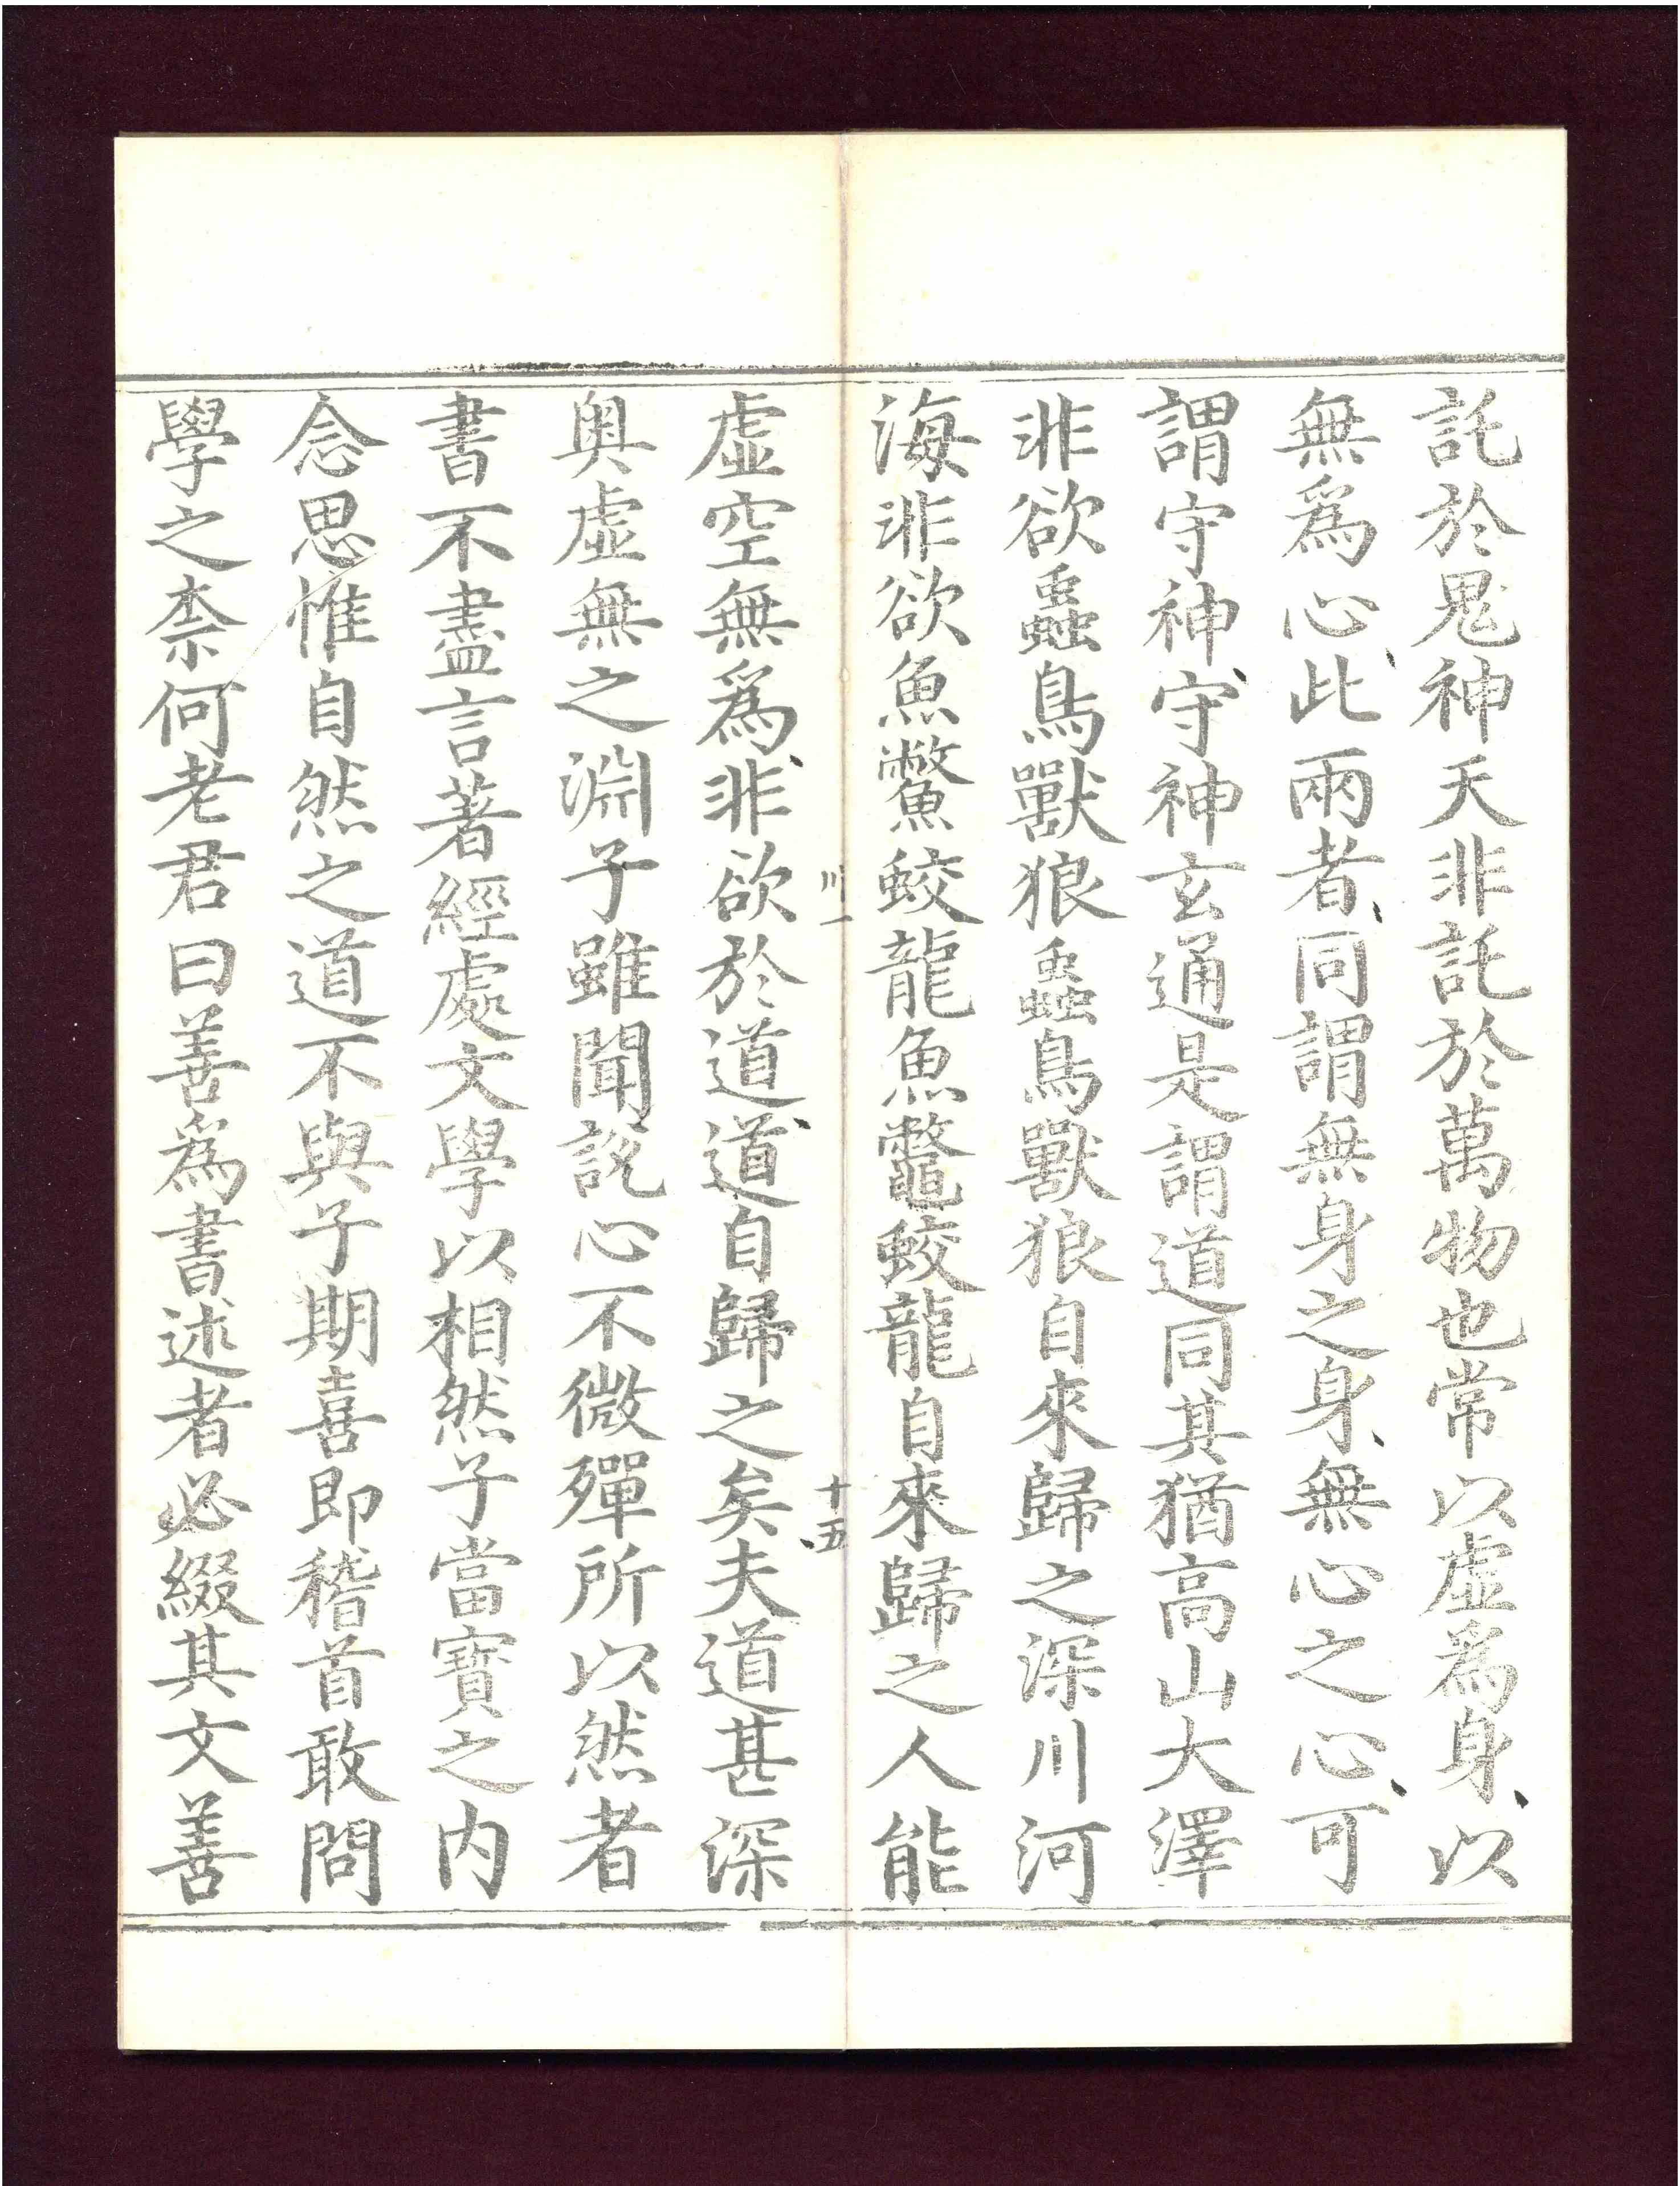 託於鬼神天非託於萬物也常以虛爲身以
無爲心此兩者同謂無身之身無心之心可
謂守神守神玄通是謂道同其猶高山大澤
非欲蟲鳥獸狼蟲鳥獸狼自來歸之深川河
海非欲魚鱉蛟龍魚鼈蛟龍自來歸之人能
川一
十五
虛空無爲非欲於道道自歸之矣夫道甚深
奥虛無之淵子雖聞說心不微殫所以然者
書不盡言著經處文學以相然子當寶之内
念思惟自然之道不與子期喜即稽首敢問
學之柰何老君曰善爲書述者必綴其文善